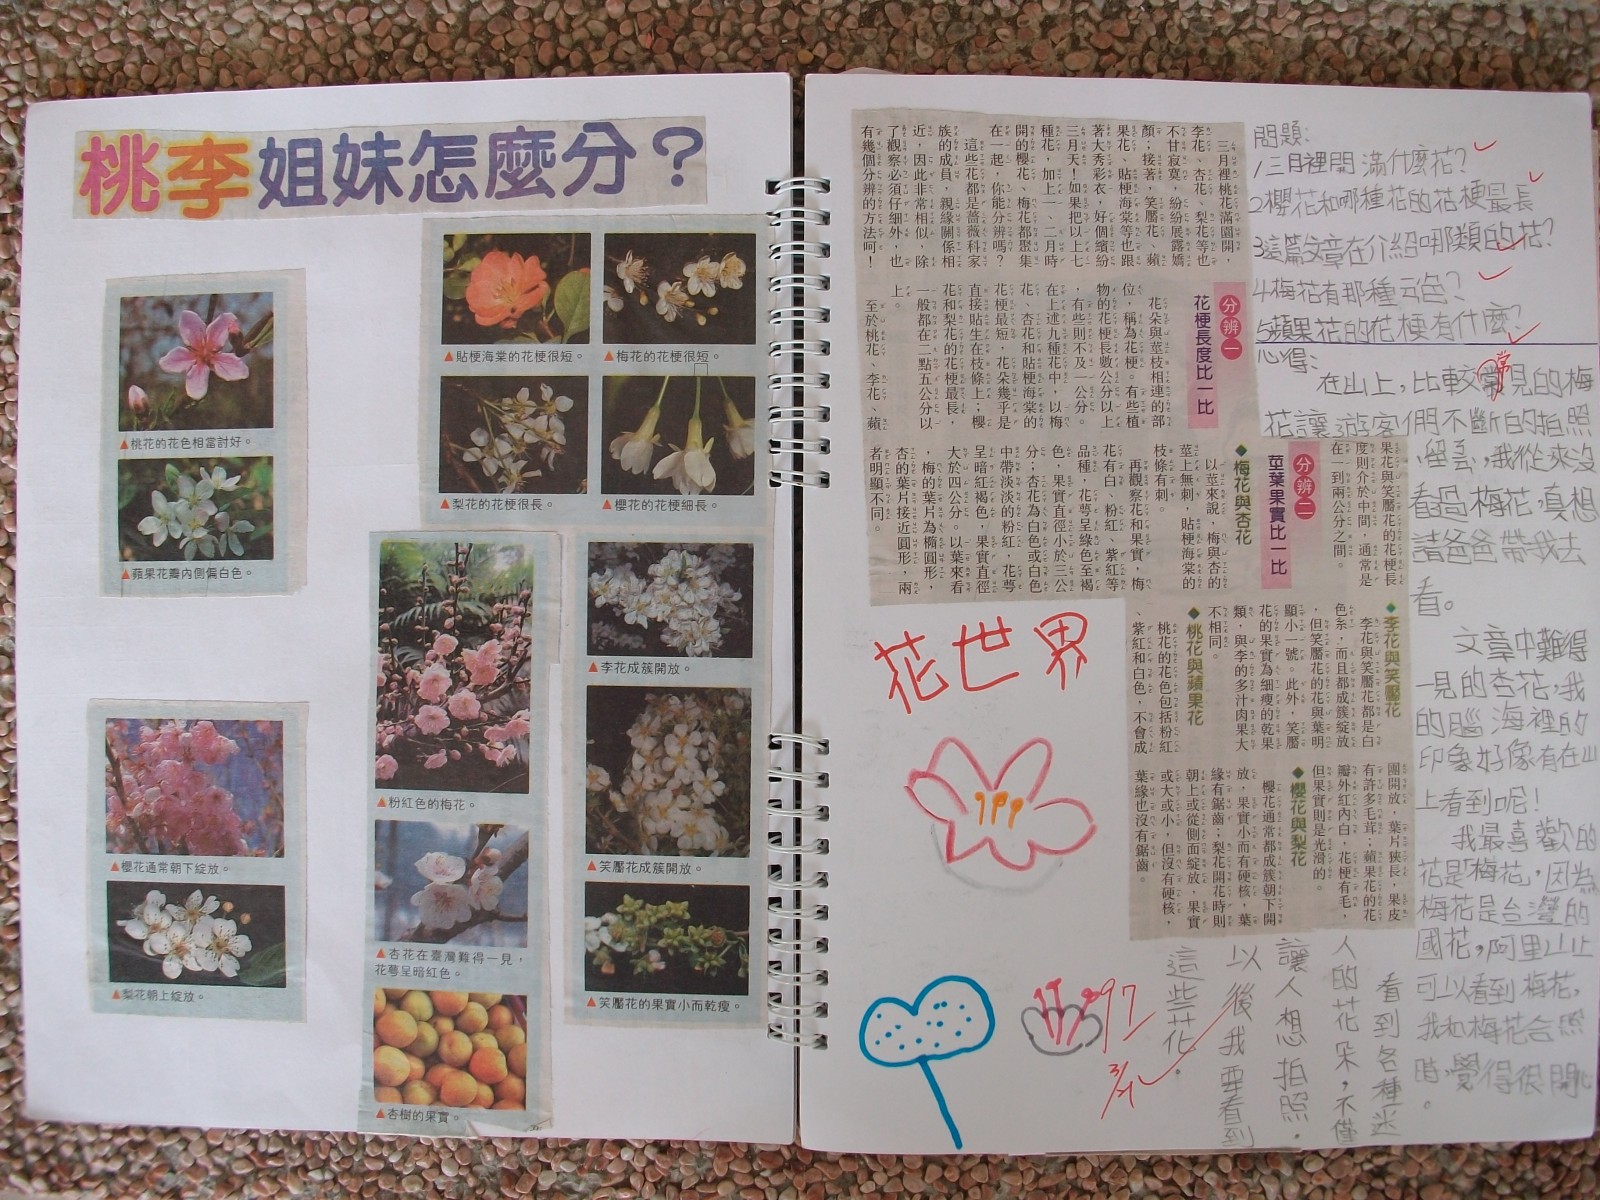 桃李姐妹怎麼分？
▲桃花的花色相當討好。
▲蘋果花瓣內側偏白色。
▲櫻花通常朝下綻放。
▲梨花朝上綻放。
▲貼梗海棠的花梗很短。
▲梅花的花梗很短。
▲梨花的花梗很長。
▲櫻花的花梗細長。
▲粉紅色的梅花。
▲杏花在臺灣難得一見，
花萼呈暗紅色。
▲杏樹的果實。
▲李花成簇開放。
▲笑靨花成簇開放。
▲笑靨花的果實小而乾瘦。
三月裡桃花滿園開，
李花、杏花、梨花等也
不甘寂寞，紛紛展露嬌
顏；接著，笑靨花、蘋
果花、貼梗海棠等也跟
著大秀彩衣，好個繽紛
三月天！如果把以上七
種花，加上一、二月時
開的櫻花、梅花都聚集
在一起，你能分辨嗎？
這些花都是薔薇科家
族的成員，親緣關係相
近，因此非常相似，除
了觀察必須仔細外，也
有幾個分辨的方法呵！
分辨一
花梗長度比一比
花朵與莖枝相連的部
位，稱為花梗。有些植
物的花梗長數公分以上
，有些則不及一公分。
在上述九種花中，以梅
花、杏花和貼梗海棠的
花梗最短，花朵幾乎是
直接貼生在枝條上；櫻
花和梨花的花梗最長，
一般都在二點五公分以
上。
至於桃花、李花、蘋
果花與笑靨花的花梗長
度則介於中間，通常是
在一到兩公分之間。
分辨二
莖葉果實比一比
◆梅花與杏花
以莖來說，梅與杏的
莖上無刺，貼梗海棠的
枝條有刺。
再觀察花和果實，梅
花有白、粉紅、紫紅等
品種，花萼呈綠色至褐
色，果實直徑小於三公
分；杏花為白色或白色
中帶淡淡的粉紅，花萼
呈暗紅褐色，果實直徑
大於四公分。以葉來看
，梅的葉片為橢圓形，
杏的葉片接近圓形，兩
者明顯不同。
◆李花與笑靨花
李花與笑靨花都是白
色系，而且都成簇綻放
，但笑靨花的花與葉明
顯小一號。此外，笑靨
花的果實為細瘦的乾果
類，與李的多汁肉果大
不相同。
◆桃花與蘋果花
桃花的花色包括粉紅
、紫紅和白色，不會成
團開放，葉片狹長，果皮
有許多毛茸；蘋果花的花
瓣外紅內白，花梗有毛，
但果實則是光滑的。
◆櫻花與梨花
櫻花通常都成簇朝下開
放，果實小而有硬核，葉
緣有鋸齒；梨花開花時則
朝上或從側面綻放，果實
或大或小，但沒有硬核，
葉緣也沒有鋸齒。
問題：
1三月裡開滿什麼花？
2櫻花和哪種花的花梗最長
3這篇文章在介紹哪類的花？
4梅花有那種
5蘋果花的花梗有什麼？
心得：
在山上，比較常見的梅
花讓遊客們不斷的拍照
、留念，我從來沒
看過梅花，真想
請爸爸帶我去
看。
文章中難得
一見的杏花，我
的腦海裡的
印象好像有在山
上看到呢！
我最喜歡的
花是「梅花」，因為
梅花是台灣的
國花，阿里山上
可以看到梅花，
我和梅花合照
時，覺得很開心
。
看到各種迷
人的花朵，不僅
讓人想拍照，
以後我要看到
這些花。
花世界
97